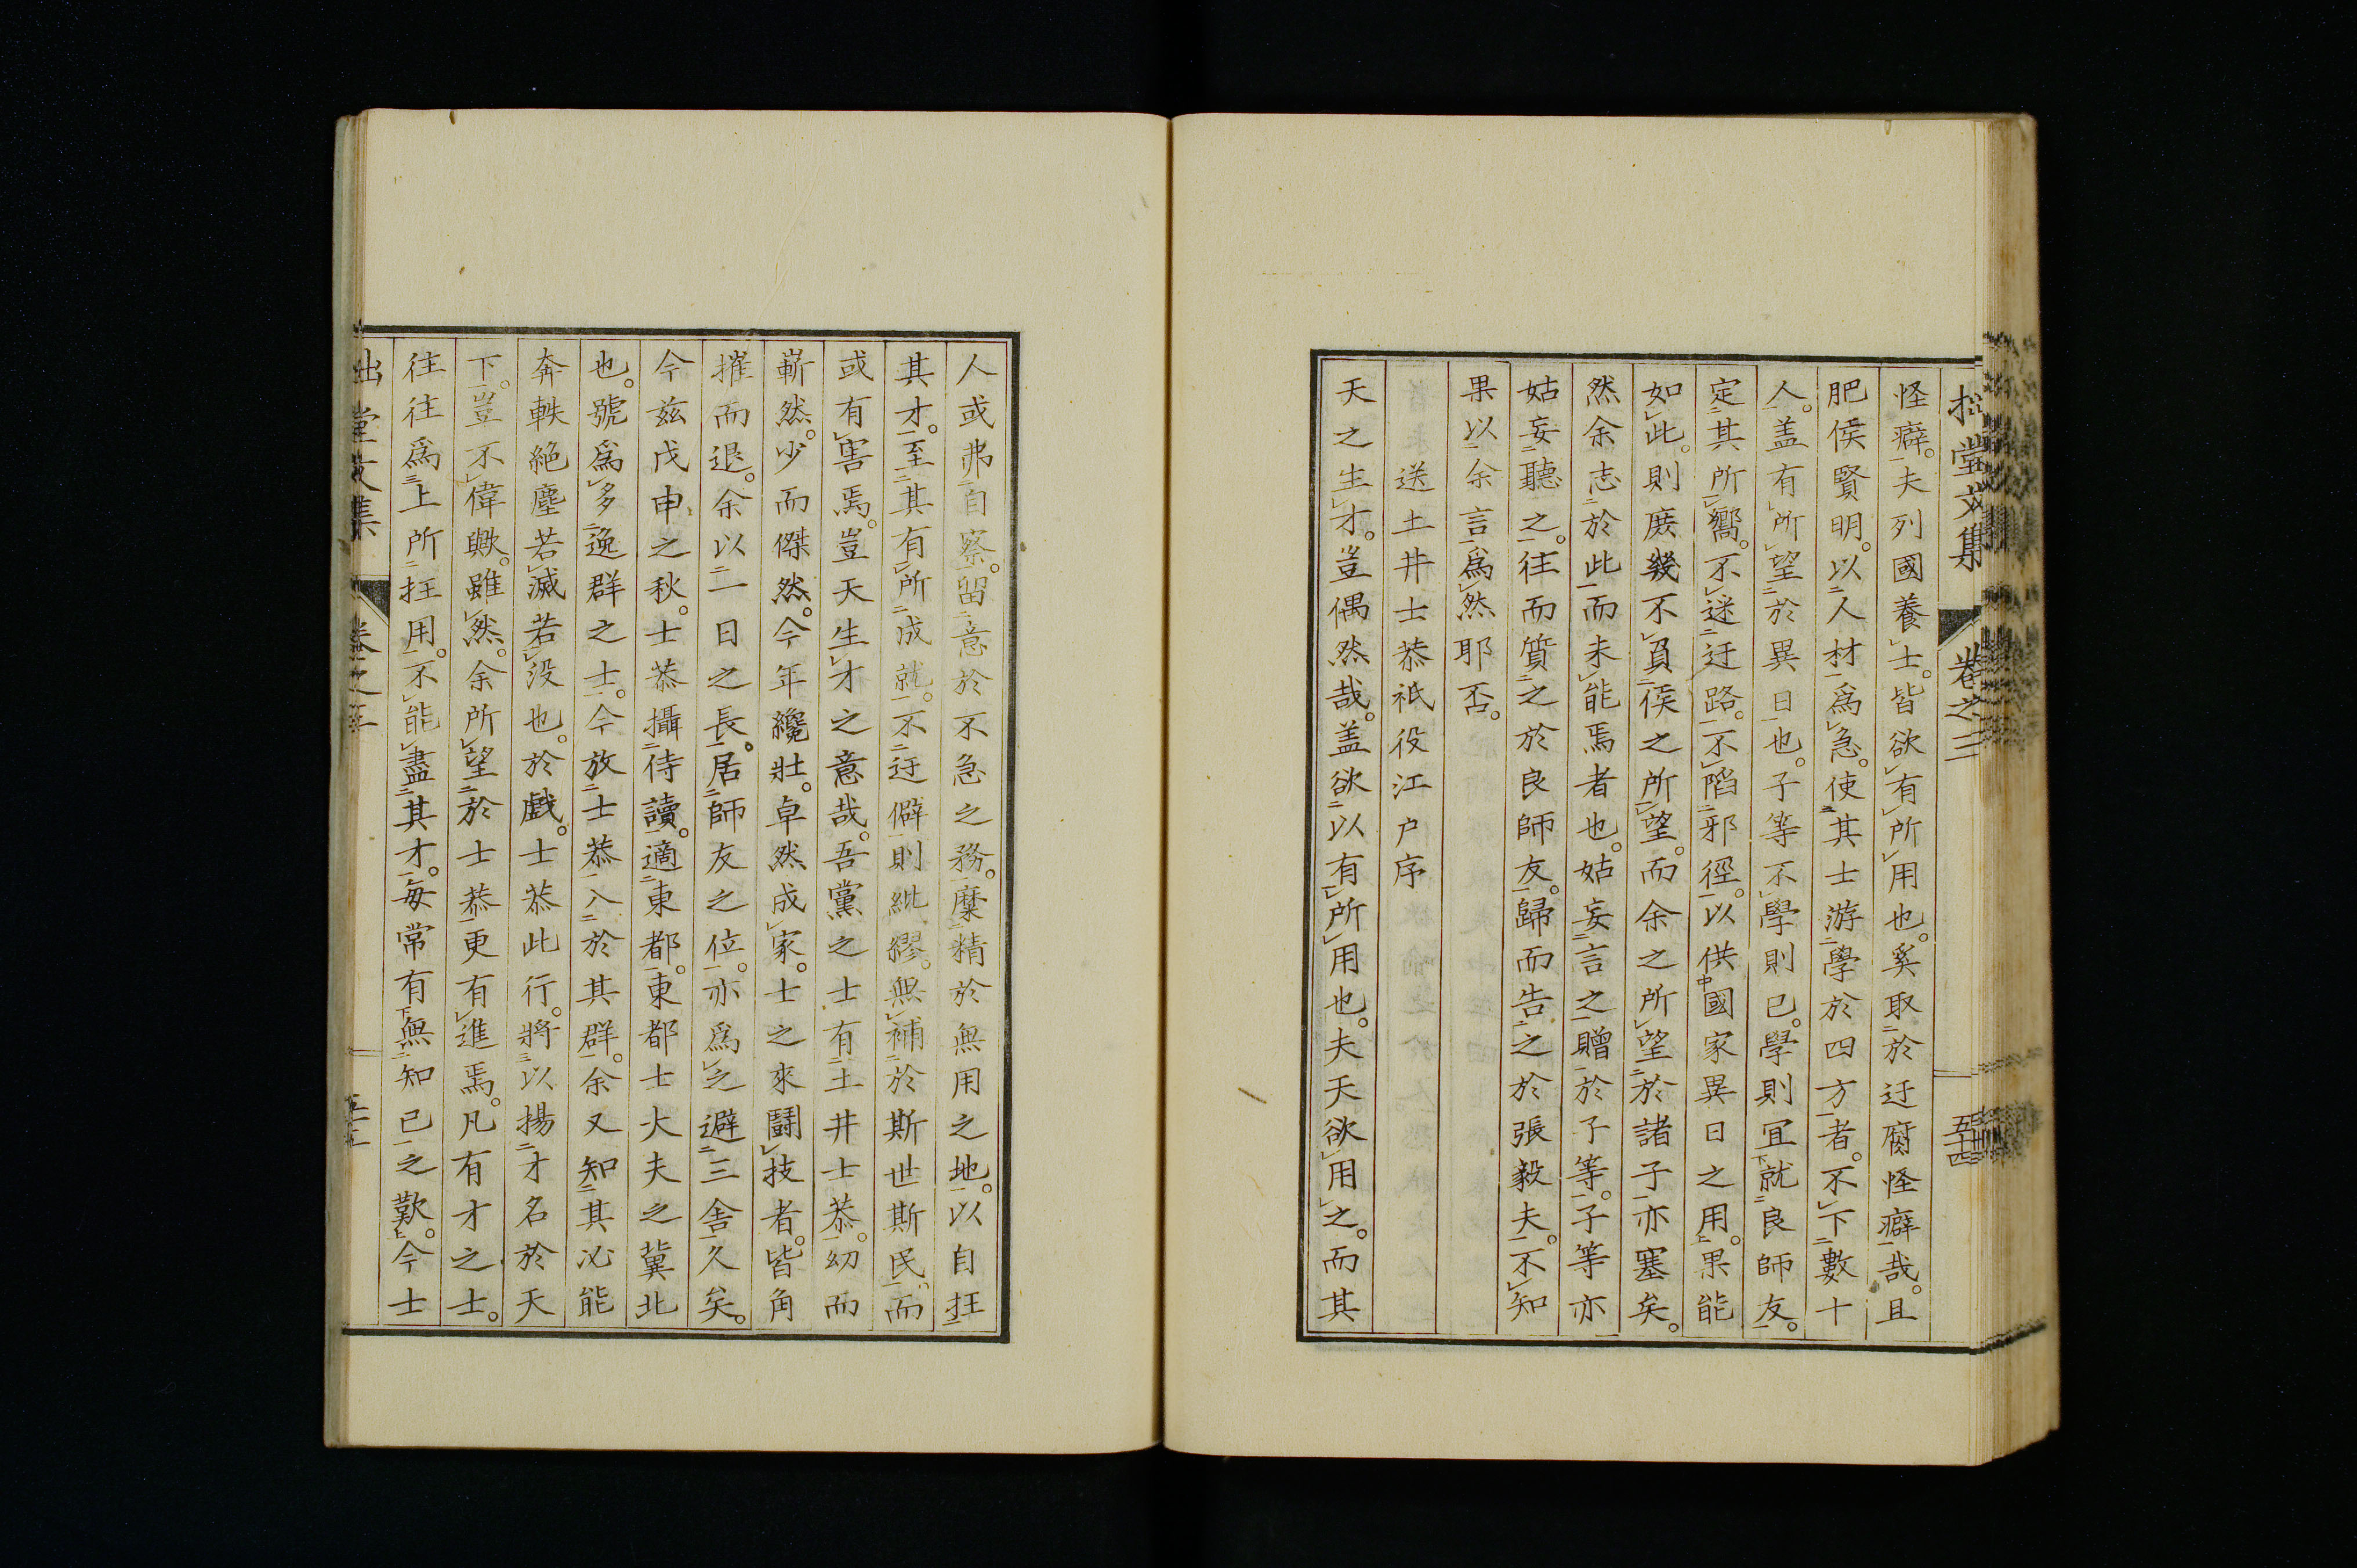 拙堂文集 卷之三 五十四
怪癖。夫列國養士。皆欲有所用也。奚取於迂腐怪癖哉。且
肥侯賢明。以人材爲急。使其士游學於四方者。不下數十
人。盖有所望於異日也。子等不學則已。學則宜就良師友。
定其所嚮。不迷迂路。不陷邪徑。以供國家異日之用。果能
如此。則庶幾不負侯之所望。而余之所望於諸子亦塞矣。
然余志於此而未能焉者也。姑妄言之贈於子等。子等亦
姑妄聽之。往而質之於良師友。歸而告之於張毅夫。不知
果以余言爲然耶否。
送土井士恭祇役江户序
天之生才。豈偶然哉。盖欲以有所用也。夫天欲用之。而其
人或弗自察。留意於不急之務。糜精於無用之地。以自抂
其才。至其有所成就。不迂僻則紕繆。無補於斯世斯民。而
或有害焉。豈天生才之意哉。吾黨之士有土井士恭。幼而
嶄然。少而傑然。今年纔壯。卓然成家。士之來鬪技者。皆角
摧而退。余以一日之長。居師友之位。亦爲之避三舍久矣。
今兹戊申之秋。士恭攝侍讀。適東都。東都士大夫之冀北
也。號爲多逸群之士。今放士恭入於其群。余又知其必能
奔軼絕塵若滅若没也。於戲。士恭此行。將以揚才名於天
下。豈不偉歟。雖然。余所望於士恭更有進焉。凡有才之士。
往往爲上所抂用。不能盡其才。每常有無知已之歎。今士
拙堂文集 卷之三